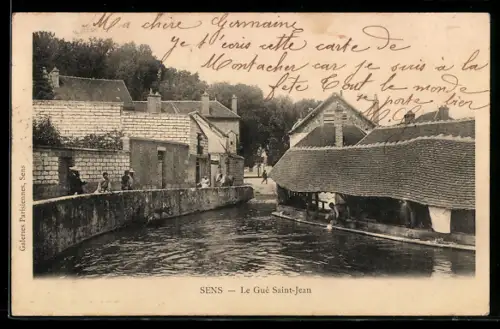 Ma chire Germaine
je t'écris cette carte de
Montacher car je suis à la
fete Tout le monde
porte bien
Galeries Parisiennes, Sens
SENS — Le Gué Saint-Jean